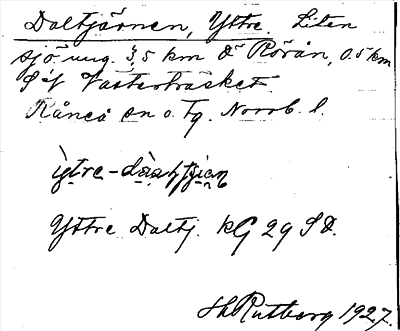 Daltjärnen, Yttre. Liten
sjö ung. 3,5 km Ö Rörån, 0.5 km
S of Västerträsket.
Råneå sn o. tg. Norrb. l.
ỳtre-dàạḥtjạn
Yttre Daltj. kG 29 SD.
Hh Rutberg 1927.